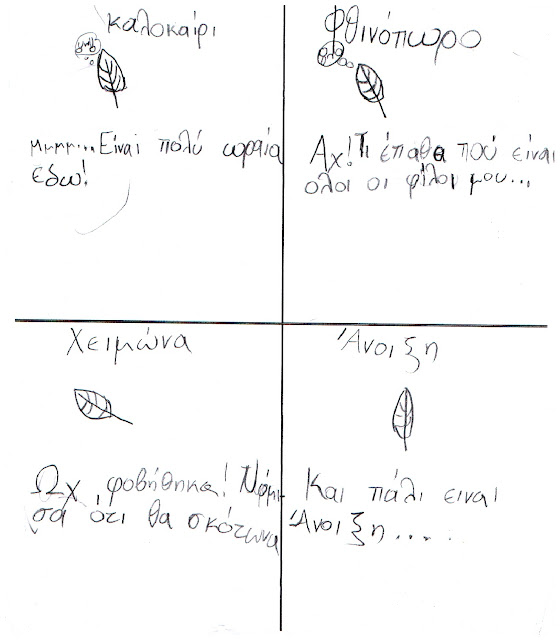 καλοκαίρι
μμμμ... Είναι πολύ ωραία
εδω!
Φθινόπωρο
Αχ! Τι έπαθα πού είναι
όλοι οι φίλοι μου...
Χειμώνα
Ωχ, φοβήθηκα! Νόμι-
σα ότι θα σκότωνα
Άνοιξη
Και πάλι είναι
Άνοιξη.....